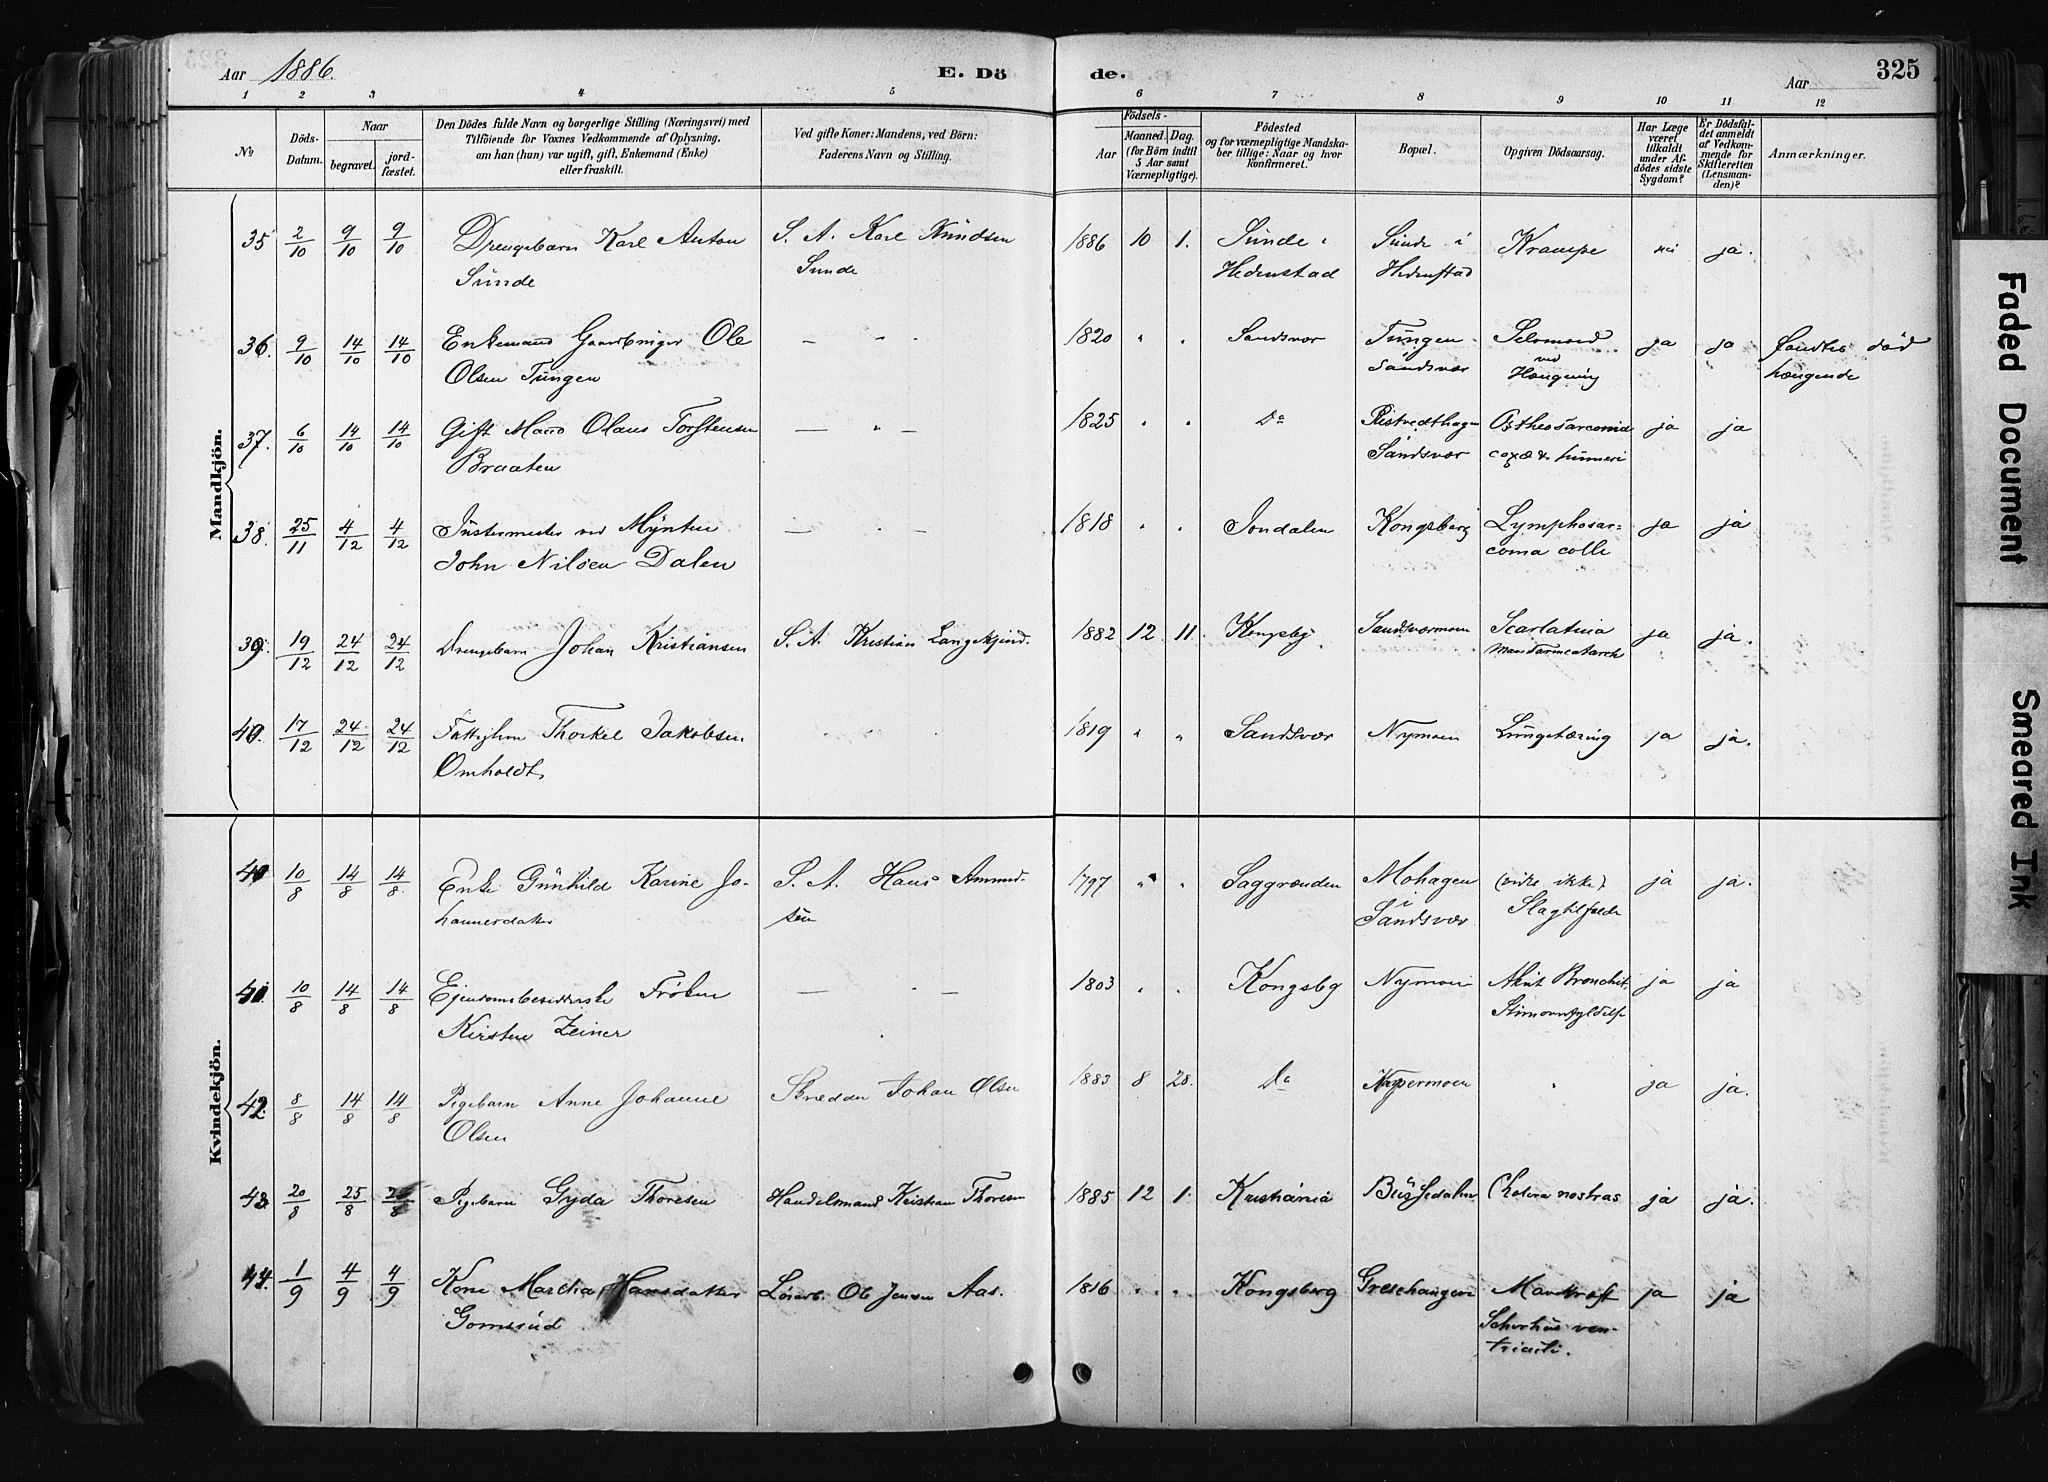 Aar 1886.
E. Dö
de.
Aar
325
1 2 3 4 5 6 7 8 9 10 11 12
No
Döds-
Datum.
Naar
begravet.
jord-
fæstet.
Den Dödes fulde Navn og borgerlige Stilling (Næringsvei) med
Tilföiende for Voxnes Vedkommende af Oplysning,
om han (hun) var ugift, gift, Enkemand (Enke)
eller fraskilt.
Ved gifte Koner: Mandens, ved Börn:
Faderens Navn og Stilling.
Födsels-
Aar
Maaned.
Dag.
(for Börn indtil
5 Aar samt
Værnepligtige).
Födested
og for værnepligtige Mandska-
ber tillige: Naar og hvor
konfirmeret.
Bopæl.
Opgiven Dödsaarsag.
Har Læge
været
tilkaldt
under Af-
dödes sidste
Sygdom?
Er Dödsfal-
det anmeldt
af Vedkom-
mende for
Skifteretten
(Lensman-
den)?
Anmærkninger.
Mandkjön.
35 2/10 9/10 9/10 Drengebarn Karl Anton S. A. Karl Knudsen 1886 10 1. Sunde i Sunde i Krampe nei ja.
Sunde Sunde Hedenstad Hedenstad
36. 9/10 14/10 14/10 Enkemand Gaardbruger Ole — " 1820 " " Sandsvær Tungen Selvmord ja ja Fandtes død
Olsen Tungen Sandsvær ved Hængning hængende
37. 6/10 14/10 14/10 Gift Mand Olaus Torstensen — " — 1825 " " Do Ristvedthagen Ostheosarcomia ja ja
Braaten Sandsvær coxæ & humeri
38. 25/11 4/12 4/12 Justermester ved Mynten — " — 1818 " " Jondalen Kongsberg Lymphosar= ja ja
John Nilsen Dalen coma colli
39. 19/12 24/12 24/12 Drengebarn Johan Kristiansen S. A. Kristian 1882 12 11. Kongsbg Sandsværmoen Scarlatina ja ja.
40. 17/12 24/12 24/12 Fattiglem Thorkel Jakobsen " " 1819 " " Sandsvær Nymoen Lungetæring ja ja.
Omholdt
Kvindekjön.
40 10/8 14/8 14/8 Enke Gunhild Karine Jo- S. A. Hans Amund- 1797 " " Saggrenden Mohagen (virke ikke) ja ja.
hannesdatter sen i Sandsvær Slagtilfælde
41. 10/8 14/8 14/8 Ejendomsbesidderske Frøken — — 1803 " " Kongsbg Nymoen Akut Bronchit, ja ja
Kirstine Zeiner
42. 8/8 14/8 14/8 Pigebarn Anne Johanne Skrædder Johan Olsen 1883 8 28. Do Nypermoen " ja ja.
Olsen
43 20/8 25/8 25/8 Pigebarn Gyda Thoresen Handelsmand Kristian Thoresen 1885 12 1. Kristiania Cholera nostras ja ja.
44. 1/9 4/9 4/9 Kone Marthea Hansdatter Ole Jensen Aas. 1816 " " Kongsberg Mavekræft ja ja
Gomsrud Schirrhus ven-
triculi.
Faded Document
Smeared Ink